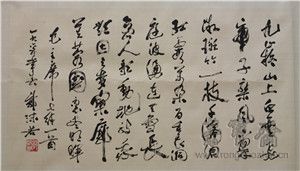 九嶷山上白雲飛
帝子乘風下翠
微斑竹一枝千滴
淚紅霞萬朵百重衣洞
庭波涌連天雪長
島人歌動地詩我
欲因之夢寥廓
芙蓉國裏盡朝暉
毛主席七律一首
郭沫若